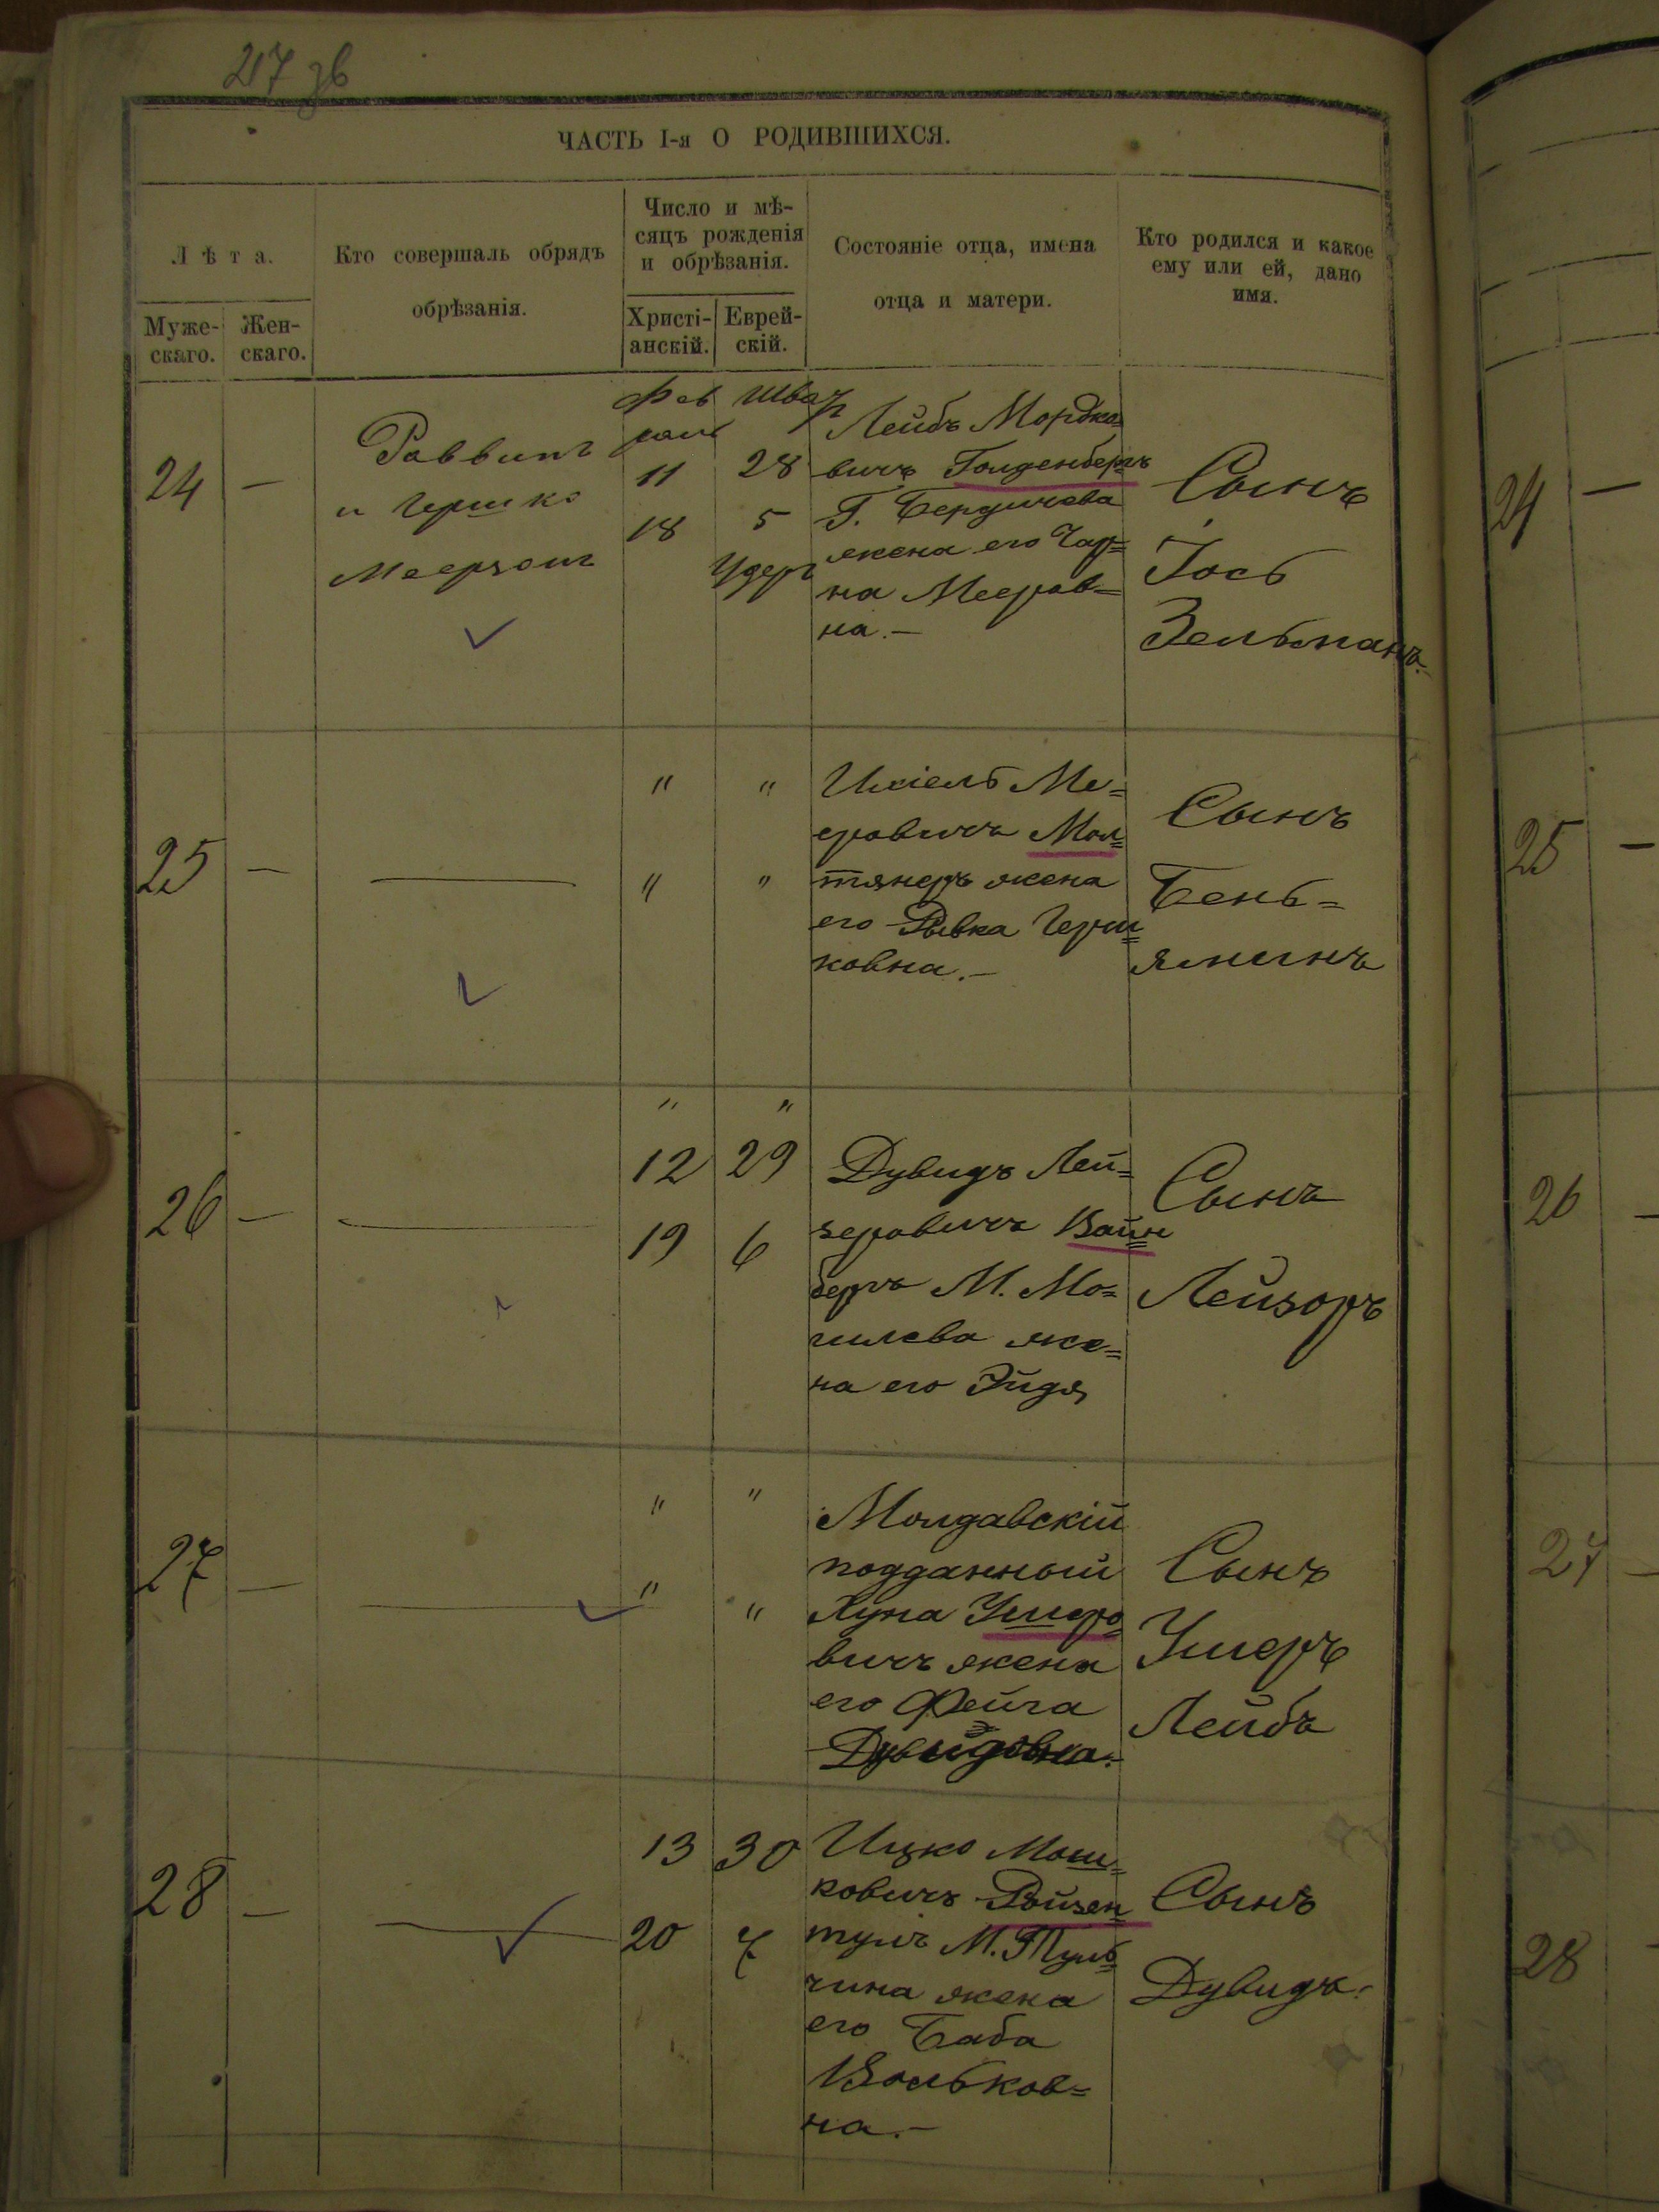 217 зв
ЧАСТЬ I-я О РОДИВШИХСЯ.
Лѣта.
Муже-
скаго.
Жен-
скаго.
Кто совершаль обрядъ
обрѣзанія.
Число и мѣ-
сяцъ рожденія
и обрѣзанія.
Христі-
анскій.
Еврей-
скій.
Состояніе отца, имена
отца и матери.
Кто родился и какое
ему или ей, дано
имя.
24
—
Раввинъ
и Гершко
Меерзонъ
Фев
раль
11
18
Шват
28
5
Удеръ
Лейбъ Мордко=
вичъ Голденбергъ
Г. Бердичева
жена его Чар=
на Мееров=
на.—
Сынъ
Іось
Зельманъ.
25
—
"
"
"
"
Ихіель Ме=
еровичъ Мол=
тянеръ жена
его Рывка Герш=
ковна.—
Сынъ
Бень=
яминъ
26
—
"
12
19
"
29
6
Дувидъ Лей=
зеровичъ Вайн=
бергъ М. Мо=
гилева же=
на его Эйдя
Сынъ
Лейзоръ
27
—
"
"
"
"
Молдавскій
подданный
Луна Ушеро=
вичъ жена
его Фейга
Дувидовна.
Сынъ
Ушеръ
Лейбъ
28
—
13
20
30
7
Ицко Мош=
ковичъ Ройзен=
тулъ М. Туль=
чина жена
его Баба
Вольков=
на.—
Сынъ
Дувидъ.
24 —
25 —
26 —
27 —
28 —